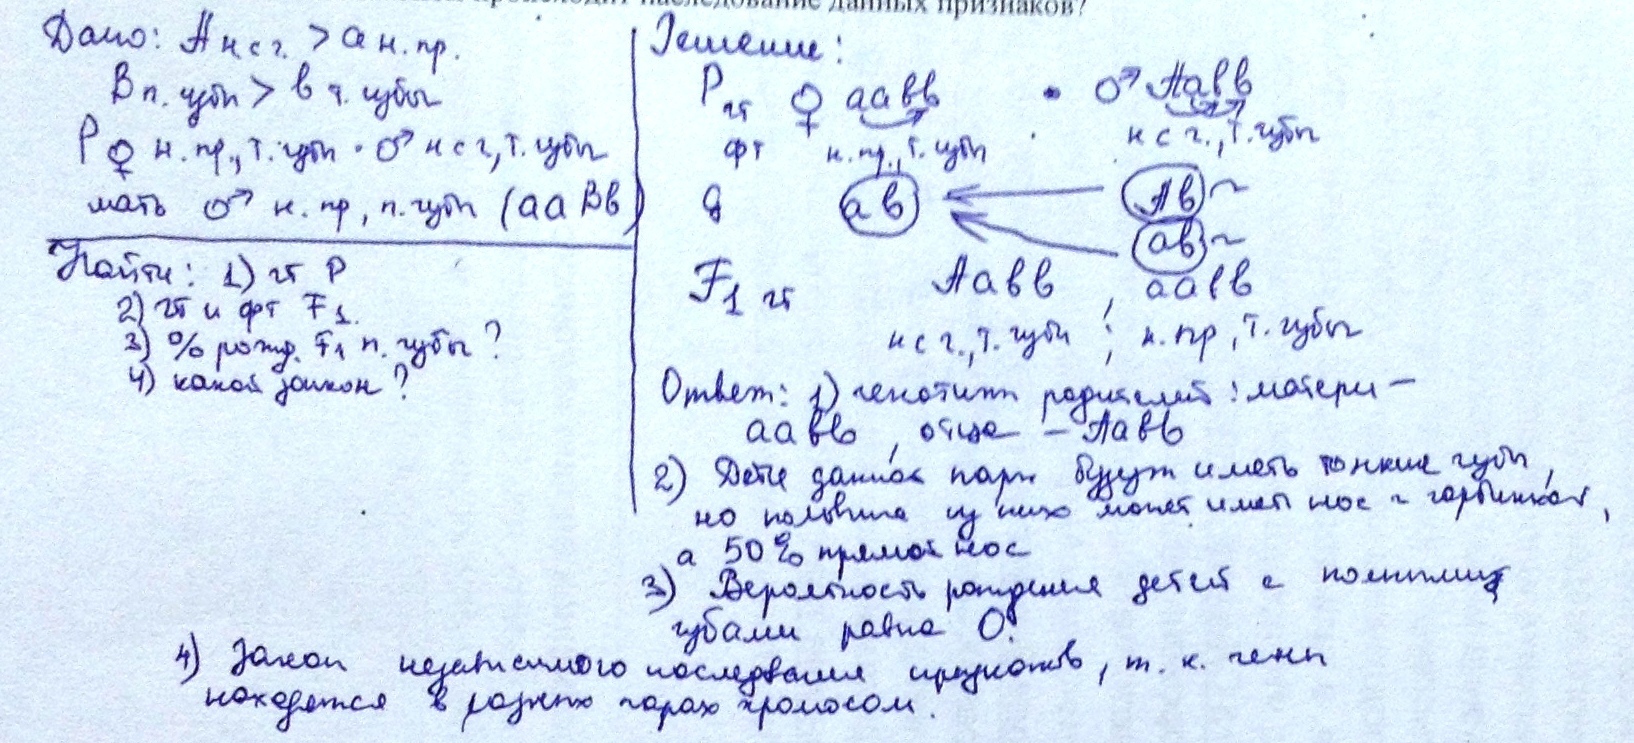 происходит наследование данных признаков?
Дано: А н с г. > а н. пр.
В п. губы > в т. губы
Р ♀ н. пр., т. губы · ♂ н с г, т. губы
мать ♂ н. пр, п. губы (ааВв)
Найти: 1) гт Р
2) гт и фт F1.
3) % рожд. F1 п. губы?
4) какой закон?
Решение:
Р гт ♀ аавв · ♂ Аавв
фт н. пр., т. губы н с г., т. губы
g ав Ав ~
ав ~
F1 гт Аавв , аавв
н с г., т. губы ; н. пр, т. губы
Ответ: 1) генотип родителей: матери –
аавв, отца – Аавв
2) Дети данной пары будут иметь тонкие губы,
но половина из них может иметь нос с горбинкой,
а 50% прямой нос
3) Вероятность рождения детей с полными
губами равна 0.
4) Закон независимого наследования признаков, т. к. гены
находятся в разных парах хромосом.